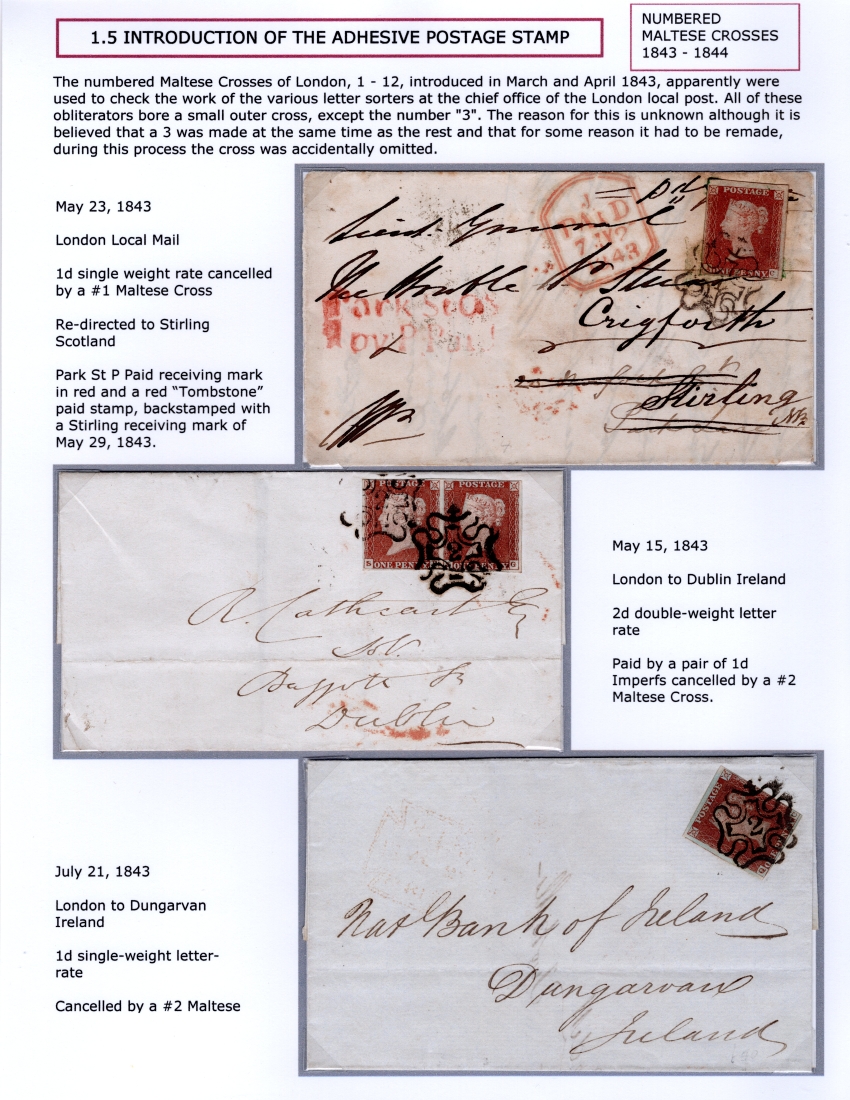 1.5 INTRODUCTION OF THE ADHESIVE POSTAGE STAMP
NUMBERED
MALTESE CROSSES
1843 - 1844
The numbered Maltese Crosses of London, 1 - 12, introduced in March and April 1843, apparently were
used to check the work of the various letter sorters at the chief office of the London local post. All of these
obliterators bore a small outer cross, except the number "3". The reason for this is unknown although it is
believed that a 3 was made at the same time as the rest and that for some reason it had to be remade,
during this process the cross was accidentally omitted.
May 23, 1843
London Local Mail
1d single weight rate cancelled
by a #1 Maltese Cross
Re-directed to Stirling
Scotland
Park St P Paid receiving mark
in red and a red “Tombstone”
paid stamp, backstamped with
a Stirling receiving mark of
May 29, 1843.
PAID
POSTAGE
Lieut General
The Honble
Park St
Crigforth
Stirling
NB
POSTAGE
POSTAGE
ONE PENNY
2
R. Cathcart Esq
Baggott St
Dublin
May 15, 1843
London to Dublin Ireland
2d double-weight letter
rate
Paid by a pair of 1d
Imperfs cancelled by a #2
Maltese Cross.
July 21, 1843
London to Dungarvan
Ireland
1d single-weight letter-
rate
Cancelled by a #2 Maltese
POSTAGE
2
Nat Bank of Ireland
Dungarvan
Ireland